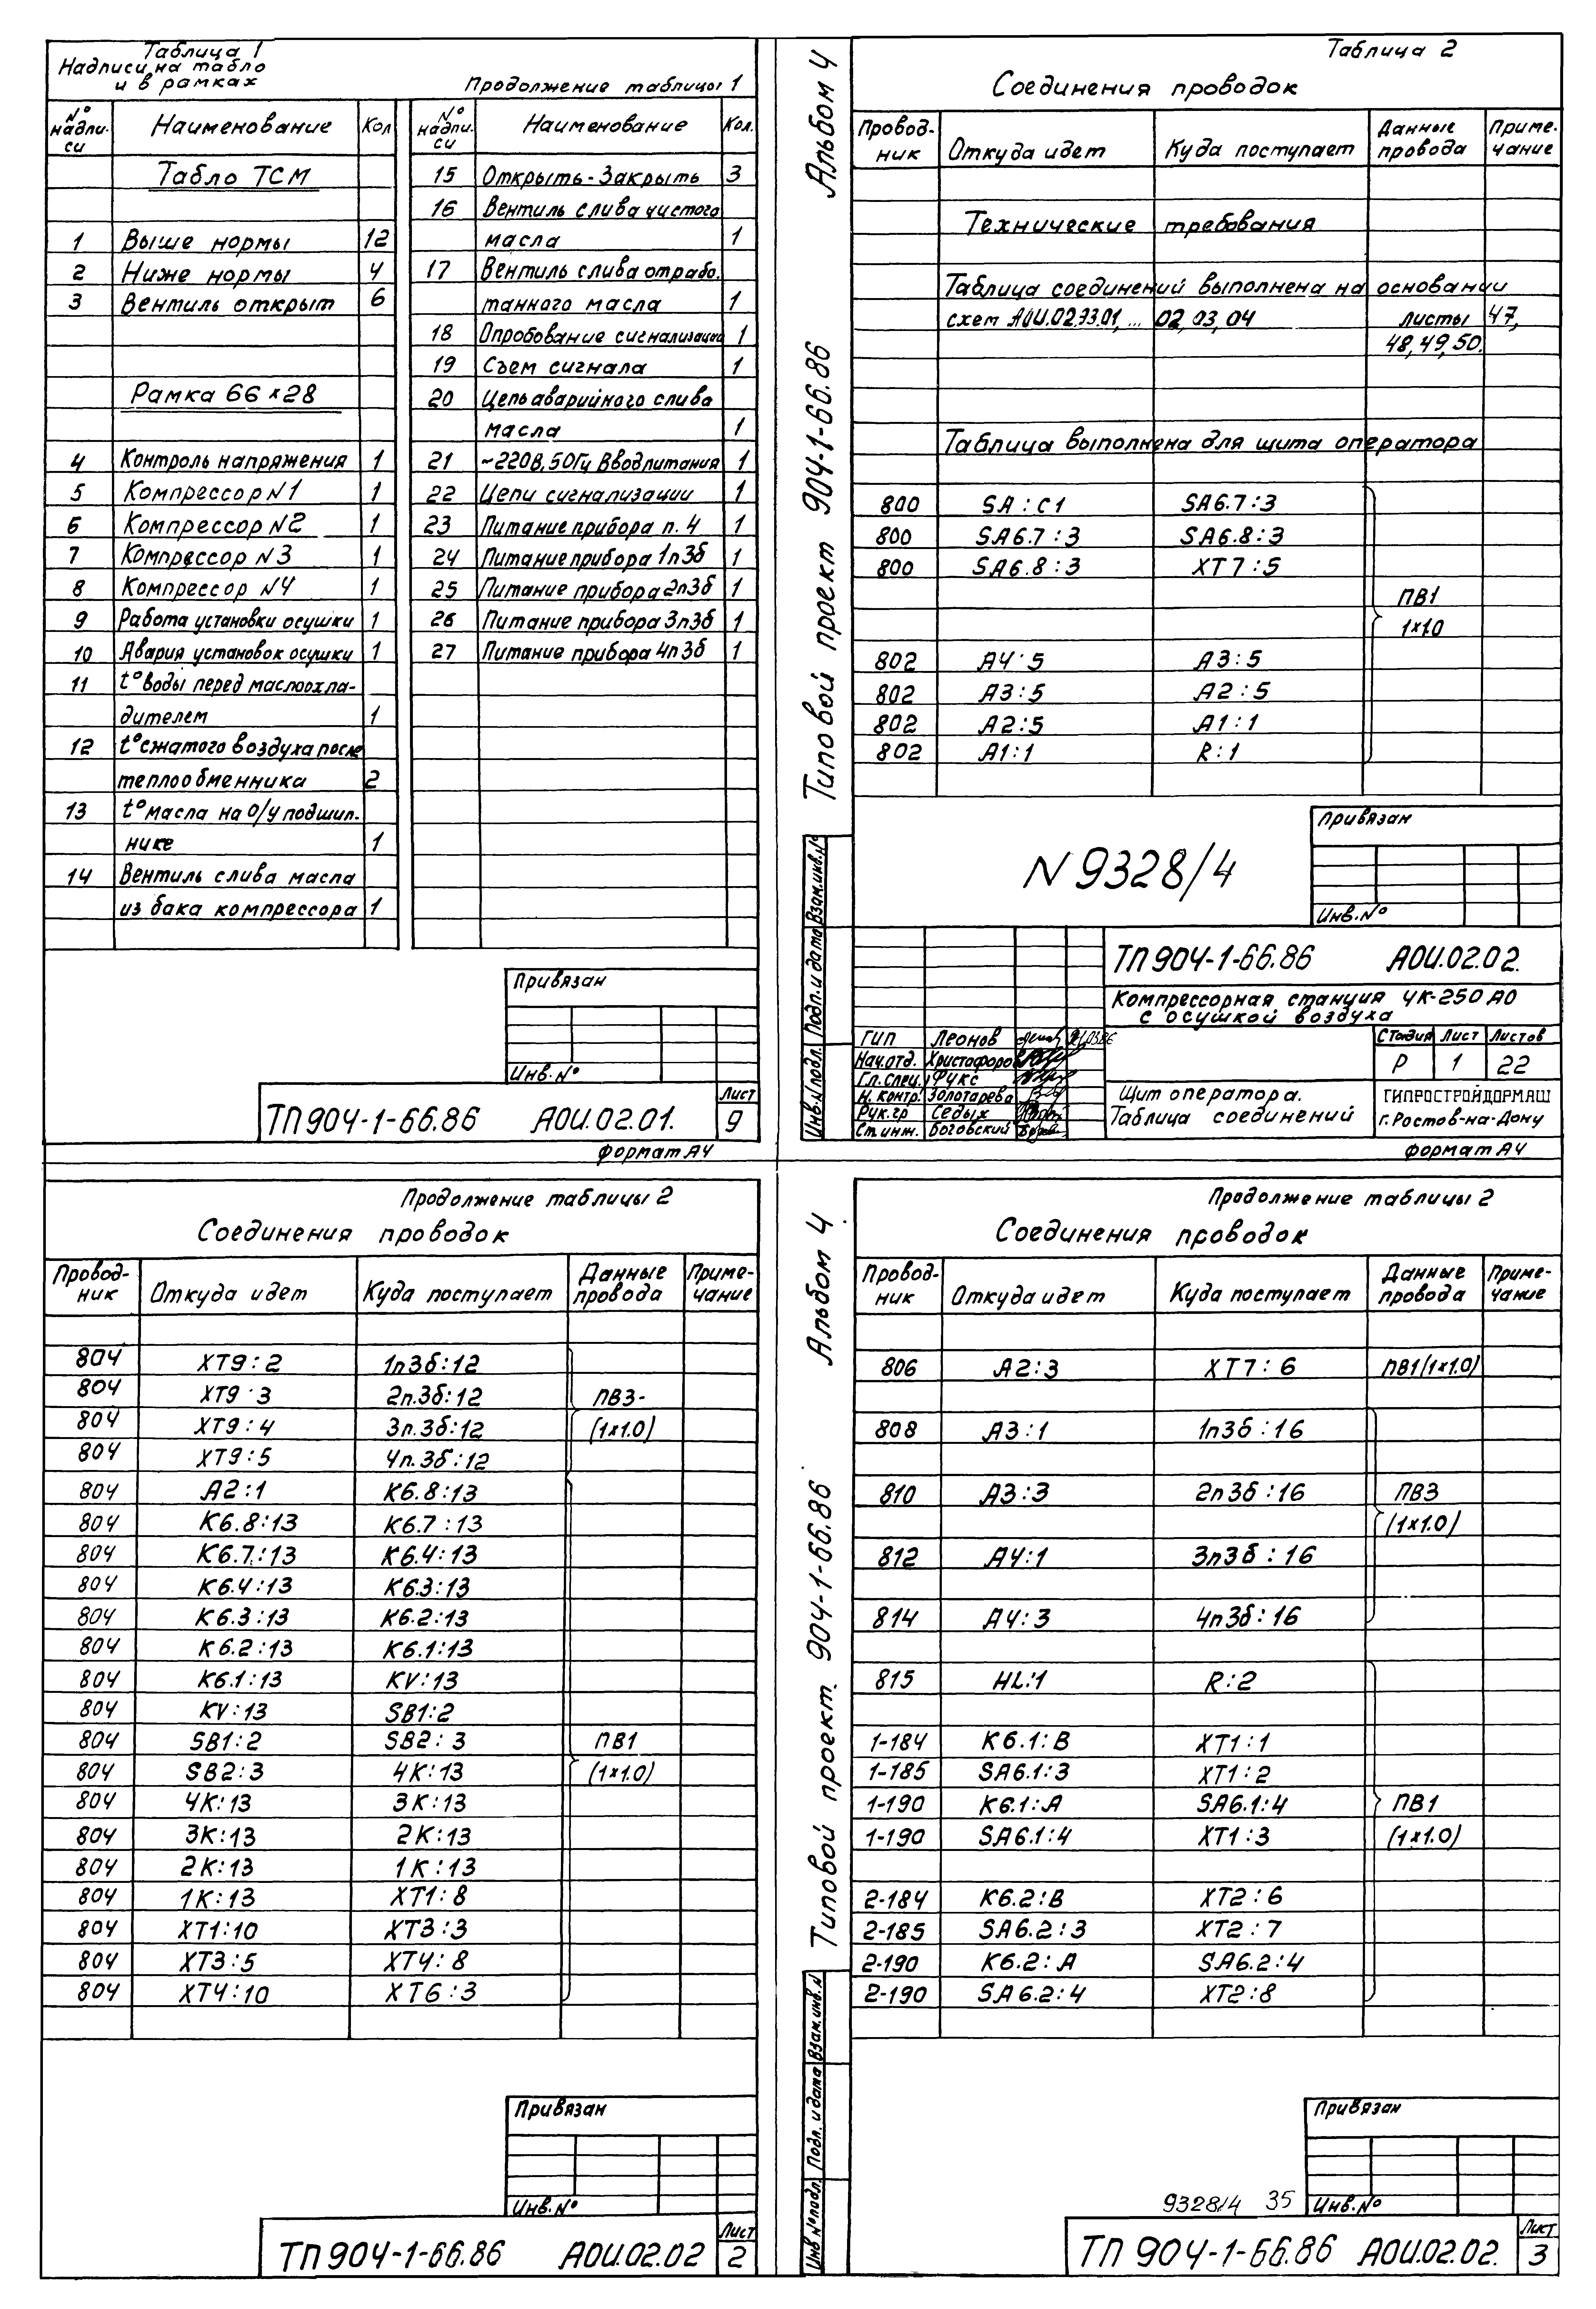 Таблица 1
Надписи на табло
и в рамках
Продолжение таблицы 1
№ надпи-си Наименование Кол
Табло ТСМ
1 Выше нормы 12
2 Ниже нормы 4
3 Вентиль открыт 6
Рамка 66×28
4 Контроль напряжения 1
5 Компрессор N1 1
6 Компрессор N2 1
7 Компрессор N3 1
8 Компрессор N4 1
9 Работа установки осушки 1
10 Авария установок осушки 1
11 t° воды перед маслоохла-
дителем 1
12 t° сжатого воздуха после
теплообменника 2
13 t° масла на о/у подшип-
нике 1
14 Вентиль слива масла
из бака компрессора 1
№ надпи-си Наименование Кол.
15 Открыть-Закрыть 3
16 Вентиль слива чистого
масла 1
17 Вентиль слива отрабо-
танного масла 1
18 Опробование сигнализации 1
19 Съем сигнала 1
20 Цепь аварийного слива
масла 1
21 ~220В, 50Гц Ввод питания 1
22 Цепи сигнализации 1
23 Питание прибора п. 4 1
24 Питание прибора 1п3б 1
25 Питание прибора 2п3б 1
26 Питание прибора 3п3б 1
27 Питание прибора 4п3б 1
Привязан
Инв.№
ТП 904-1-66.86 АОИ.02.01.
Лист
9
формат А4
Альбом 4
Типовой проект 904-1-66.86
Таблица 2
Соединения проводок
Провод-ник Откуда идет Куда поступает Данные провода Приме-чание
Технические требования
Таблица соединений выполнена на основании
схем АОИ.02.03.01, ... 02, 03, 04 листы 47,
48, 49, 50.
Таблица выполнена для щита оператора
800 SA : C1 SA6.7 : 3
800 SA6.7 : 3 SA6.8 : 3
800 SA6.8 : 3 XT7 : 5
ПВ1
1×1.0
802 A4 : 5 A3 : 5
802 A3 : 5 A2 : 5
802 A2 : 5 A1 : 1
802 A1 : 1 R : 1
N 9328/4
Привязан
Инв.№
Инв.№ подл. Подп. и дата Взам.инв.№
ТП 904-1-66.86 АОИ.02.02.
Компрессорная станция 4К-250 АО
с осушкой воздуха
ГИП Леонов
Нач.отд. Христофоров
Гл.спец. Фукс
Н. контр. Золотарева
Рук.гр Седых
Ст.инж. Боговский
Стадия Лист Листов
Р 1 22
Щит оператора.
Таблица соединений
ГИПРОСТРОЙДОРМАШ
г.Ростов-на-Дону
формат А4
Продолжение таблицы 2
Соединения проводок
Провод-ник Откуда идет Куда поступает Данные провода Приме-чание
804 XT9 : 2 1п3б : 12
804 XT9 : 3 2п.3б : 12 ПВ3-
804 XT9 : 4 3п.3б : 12 (1×1.0)
804 XT9 : 5 4п.3б : 12
804 A2 : 1 K6.8 : 13
804 K6.8 : 13 K6.7 : 13
804 K6.7 : 13 K6.4 : 13
804 K6.4 : 13 K6.3 : 13
804 K6.3 : 13 K6.2 : 13
804 K6.2 : 13 K6.1 : 13
804 K6.1 : 13 KV : 13
804 KV : 13 SB1 : 2
804 SB1 : 2 SB2 : 3 ПВ1
804 SB2 : 3 4K : 13 (1×1.0)
804 4K : 13 3K : 13
804 3K : 13 2K : 13
804 2K : 13 1K : 13
804 1K : 13 XT1 : 8
804 XT1 : 10 XT3 : 3
804 XT3 : 5 XT4 : 8
804 XT4 : 10 XT6 : 3
Привязан
Инв.№
ТП 904-1-66.86 АОИ.02.02
Лист
2
Альбом 4
Типовой проект. 904-1-66.86
Продолжение таблицы 2
Соединения проводок
Провод-ник Откуда идет Куда поступает Данные провода Приме-чание
806 A2 : 3 XT7 : 6 ПВ1(1×1.0)
808 A3 : 1 1п3б : 16
810 A3 : 3 2п3б : 16 ПВ3
(1×1.0)
812 A4 : 1 3п3б : 16
814 A4 : 3 4п3б : 16
815 HL : 1 R : 2
1-184 K6.1 : B XT1 : 1
1-185 SA6.1 : 3 XT1 : 2
1-190 K6.1 : A SA6.1 : 4 ПВ1
1-190 SA6.1 : 4 XT1 : 3 (1×1.0)
2-184 K6.2 : B XT2 : 6
2-185 SA6.2 : 3 XT2 : 7
2-190 K6.2 : A SA6.2 : 4
2-190 SA6.2 : 4 XT2 : 8
Инв №подл. Подп. и дата Взам.инв.N
Привязан
9328/4 35 Инв.№
ТП 904-1-66.86 АОИ.02.02.
Лист
3